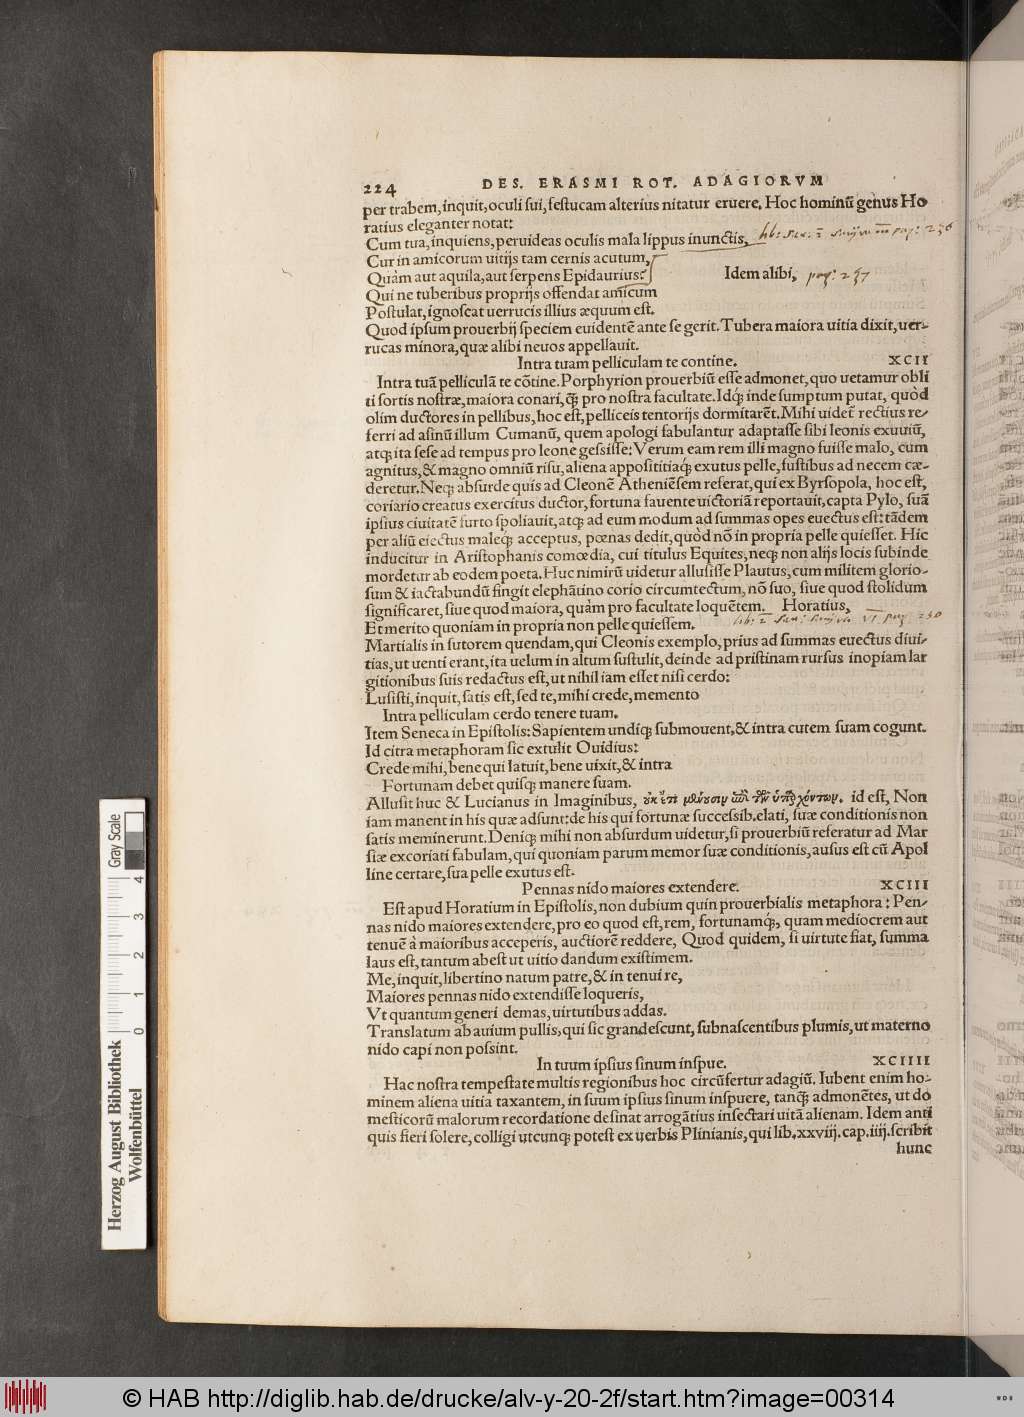 224 DES. ERASMI ROT. ADAGIORVM
per trabem, inquit, oculi sui, festucam alterius nitatur eruere. Hoc hominũ genus Ho
ratius eleganter notat:
Cum tua, inquiens, peruideas oculis mala lippus inunctis, pag: 236
Cur in amicorum uitijs tam cernis acutum,
Quàm aut aquila, aut serpens Epidaurius? Idem alibi, pag: 257
Qui ne tuberibus proprijs offendat amicum
Postulat, ignoscat uerrucis illius æquum est.
Quod ipsum prouerbij speciem euidentẽ ante se gerit. Tubera maiora uitia dixit, uer-
rucas minora, quæ alibi neuos appellauit.
Intra tuam pelliculam te contine. XCII
Intra tuã pelliculã te cõtine. Porphyrion prouerbiũ esse admonet, quo uetamur obli
ti sortis nostræ, maiora conari, q̃ꝫ pro nostra facultate. Idqꝫ inde sumptum putat, quòd
olim ductores in pellibus, hoc est, pelliceis tentorijs dormitarẽt. Mihi uidet̃ rectius re-
ferri ad asinũ illum Cumanũ, quem apologi fabulantur adaptasse sibi leonis exuuiũ,
atqꝫ ita sese ad tempus pro leone gessisse: Verum eam rem illi magno fuisse malo, cum
agnitus, & magno omniũ risu, aliena apposititiaqꝫ exutus pelle, fustibus ad necem cæ-
deretur. Neqꝫ absurde quis ad Cleonẽ Atheniẽsem referat, qui ex Byrsopola, hoc est,
coriario creatus exercitus ductor, fortuna fauente uictoriã reportauit, capta Pylo, suã
ipsius ciuitatẽ furto spoliauit, atqꝫ ad eum modum ad summas opes euectus est: tãdem
per aliũ eiectus maleqꝫ acceptus, pœnas dedit, quòd nõ in propria pelle quiesset. Hic
inducitur in Aristophanis comœdia, cui titulus Equites, neqꝫ non alijs locis subinde
mordetur ab eodem poeta. Huc nimirũ uidetur allusisse Plautus, cum militem glorio-
sum & iactabundũ fingit elephãtino corio circumtectum, nõ suo, siue quod stolidum
significaret, siue quod maiora, quàm pro facultate loquẽtem. Horatius,
Et merito quoniam in propria non pelle quiessem. pag: 230
Martialis in sutorem quendam, qui Cleonis exemplo, prius ad summas euectus diui-
tias, ut uenti erant, ita uelum in altum sustulit, deinde ad pristinam rursus inopiam lar
gitionibus suis redactus est, ut nihil iam esset nisi cerdo:
Lusisti, inquit, satis est, sed te, mihi crede, memento
Intra pelliculam cerdo tenere tuam.
Item Seneca in Epistolis: Sapientem undiqꝫ submouent, & intra cutem suam cogunt.
Id citra metaphoram sic extulit Ouidius:
Crede mihi, bene qui latuit, bene uixit, & intra
Fortunam debet quisqꝫ manere suam.
Allusit huc & Lucianus in Imaginibus, οὐκ ἔτι μένουσιν ἐπὶ τῶν ὑπαρχόντων. id est, Non
iam manent in his quæ adsunt: de his qui fortunæ successib. elati, suæ conditionis non
satis meminerunt. Deniqꝫ mihi non absurdum uidetur, si prouerbiũ referatur ad Mar
siæ excoriati fabulam, qui quoniam parum memor suæ conditionis, ausus est cũ Apol
line certare, sua pelle exutus est.
Pennas nido maiores extendere. XCIII
Est apud Horatium in Epistolis, non dubium quin prouerbialis metaphora: Pen-
nas nido maiores extendere, pro eo quod est, rem, fortunamqꝫ, quam mediocrem aut
tenuẽ à maioribus acceperis, auctiorẽ reddere, Quod quidem, si uirtute fiat, summa
laus est, tantum abest ut uitio dandum existimem.
Me, inquit, libertino natum patre, & in tenui re,
Maiores pennas nido extendisse loqueris,
Vt quantum generi demas, uirtutibus addas.
Translatum ab auium pullis, qui sic grandescunt, subnascentibus plumis, ut materno
nido capi non possint.
In tuum ipsius sinum inspue. XCIIII
Hac nostra tempestate multis regionibus hoc circũfertur adagiũ. Iubent enim ho-
minem aliena uitia taxantem, in suum ipsius sinum inspuere, tanqꝫ admonẽtes, ut do
mesticorũ malorum recordatione desinat arrogãtius insectari uitã alienam. Idem anti
quis fieri solere, colligi utcunqꝫ potest ex uerbis Plinianis, qui lib. xxviij. cap. iiij. scribit
hunc
Gray Scale
0 1 2 3 4
Herzog August Bibliothek
Wolfenbüttel
© HAB http://diglib.hab.de/drucke/alv-y-20-2f/start.htm?image=00314